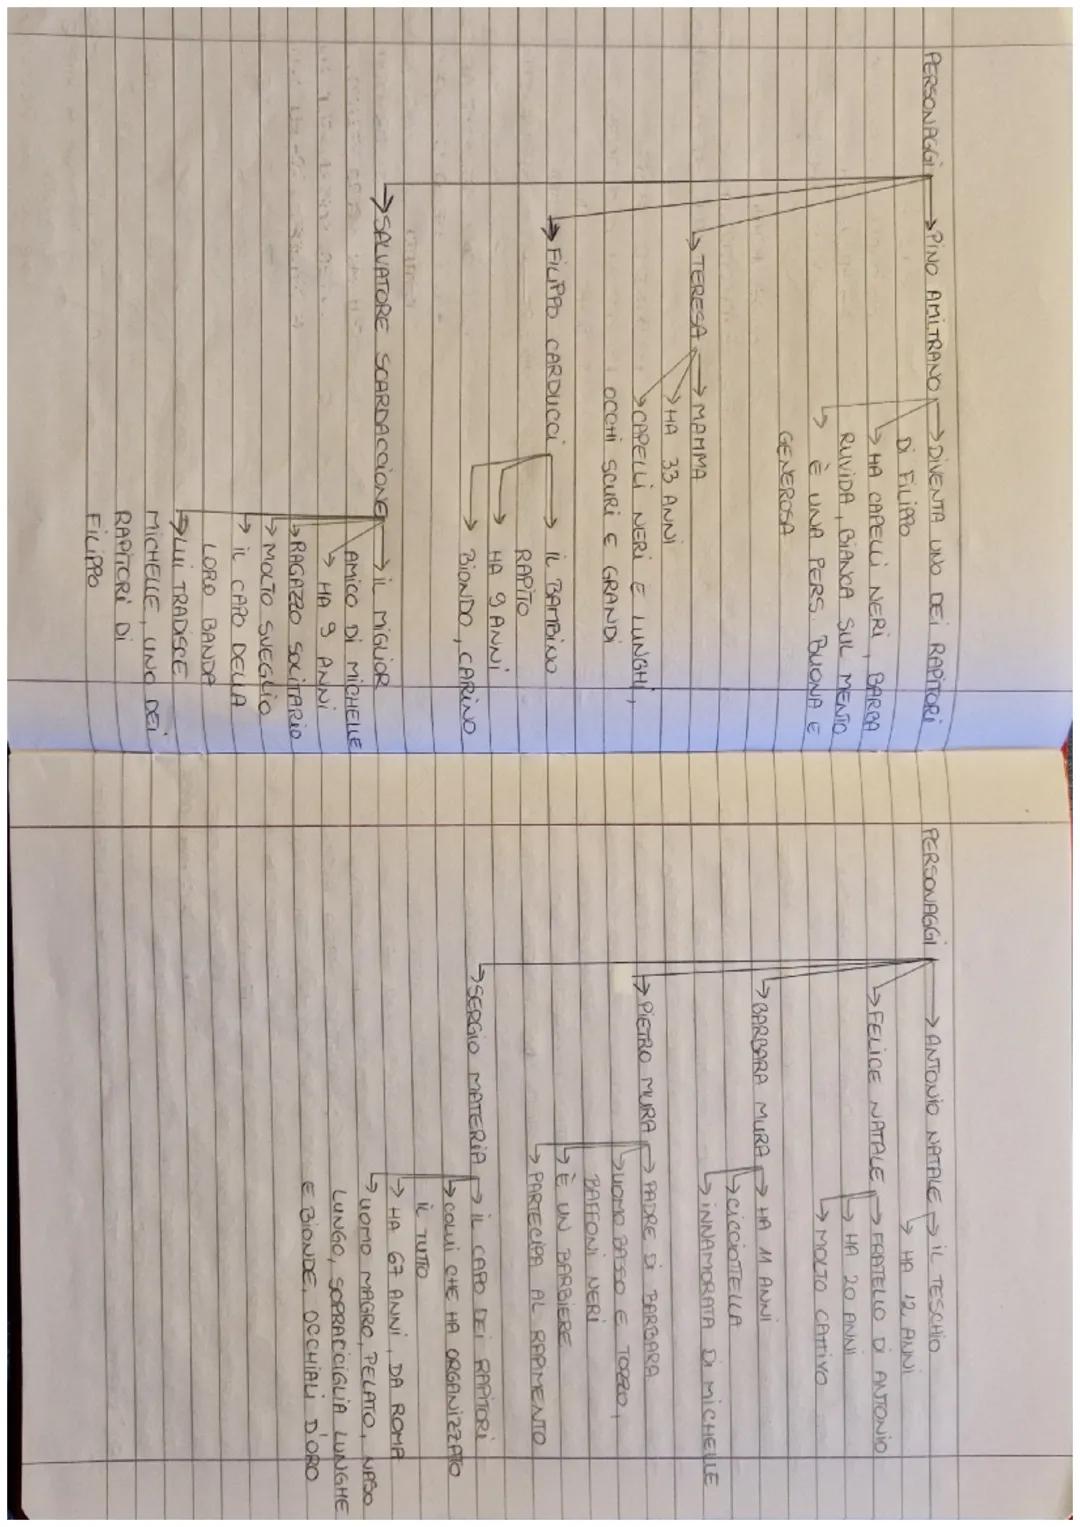 PERSONAGGI → PINO AMITRANO → DIVENTA UNO DEI RAPITORI
DI FILIPPO
→ HA CAPELLI NERI, BARBA
RUVIDA, BIANCA SUL MENTO
→ È UNA PERS. BUONA E
GENEROSA
→ TERESA → MAMMA
→ HA 33 ANNI
→ CAPELLI NERI E LUNGHI,
OCCHI SCURI E GRANDI
→ FILIPPO CARDUCCI → IL BAMBINO
RAPITO
→ HA 9 ANNI
→ BIONDO, CARINO
→ SALVATORE SCARDACCIONE → IL MIGLIOR
AMICO DI MICHELLE
→ HA 9 ANNI
→ RAGAZZO SOLITARIO
→ MOLTO SVEGLIO
→ IL CAPO DELLA
LORO BANDA
→ LUI TRADISCE
MICHELLE, UNO DEI
RAPITORI DI
FILIPPO
PERSONAGGI → ANTONIO NATALE → IL TESCHIO
→ HA 12 ANNI
→ FELICE NATALE → FRATELLO DI ANTONIO
→ HA 20 ANNI
→ MOLTO CATTIVO
→ BARBARA MURA → HA 11 ANNI
→ CICCIOTTELLA
→ INNAMORATA DI MICHELLE
→ PIETRO MURA → PADRE DI BARBARA
→ UOMO BASSO E TOZZO,
BAFFONI NERI
→ È UN BARBIERE
→ PARTECIPA AL RAPIMENTO
→ SERGIO MATERIA → IL CAPO DEI RAPITORI
→ COLUI CHE HA ORGANIZZATO
IL TUTTO
→ HA 67 ANNI, DA ROMA
→ UOMO MAGRO, PELATO, NASO
LUNGO, SOPRACCIGLIA LUNGHE
E BIONDE, OCCHIALI D'ORO